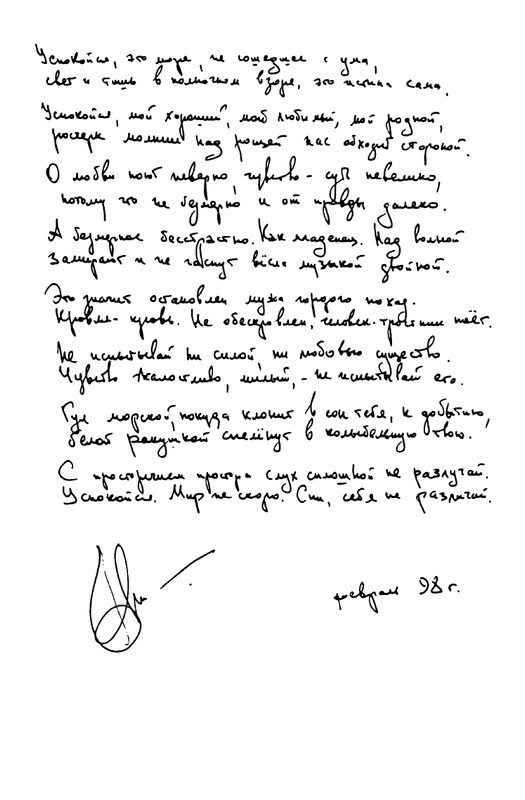 Успокойся, это море, не сошедшее с ума,
свет и тишь в полночном взоре, это истина сама.
Успокойся, мой хороший, мой любимый, мой родной,
росчерк молнии над рощей нас обходит стороной.
О любви поют неверно, чувство - суть невелико,
потому что не безмерно и от правды далеко.
А безмерное бесстрастно. Как младенец. Над волной
Замирают и не гаснут вёсла музыкой двойной.
Это значит остановлен мужа гордого поход.
Кровля - кровь. Не обескровлен, человек-тростник поёт.
Не испытывай ни силой, ни любовью существо.
Чувство жалостливо, милый, - не испытывай его.
Гул морской, покуда клонит в сон тебя, к добытию,
белой ракушкой спелёнут в колыбельную твою.
С просторечием простора слух сплошной не разлучай.
Успокойся. Мир не скоро. Спи, себя не различай.
февраль 98 г.